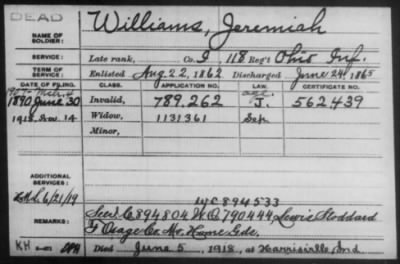 DEAD
NAME OF SOLDIER: Williams, Jeremiah
SERVICE: Late rank, Co. I, 118 Reg't Ohio Inf.
TERM OF SERVICE: Enlisted Aug. 22, 1862 Discharged June 24, 1865
DATE OF FILING. CLASS. APPLICATION NO. LAW. CERTIFICATE NO.
1907
age
1890 June 30 Invalid, 789,262 J. 562439
1918, Nov. 14 Widow, 1131361 Sep
Minor,
ADDITIONAL SERVICES:
WC 894533
6/21/19
REMARKS: C 894804 WO 790444 Lewis Stoddard
F Osage Co. Mo. Home Gds.
KH Died June 5, 1918, at Harrisville, Ind